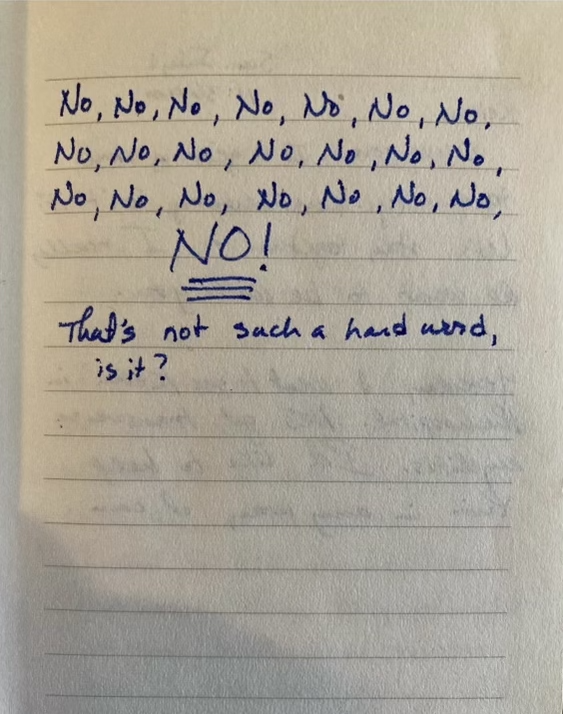 No, No, No, No, No, No, No,
No, No, No, No, No, No, No,
No, No, No, No, No, No, No,
NO!
That's not such a hard word,
is it?